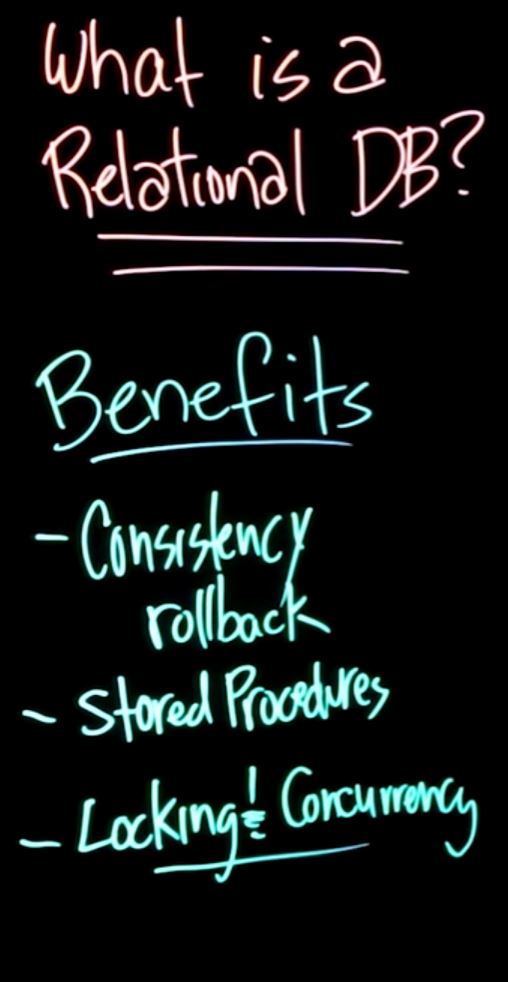 What is a
Relational DB?
Benefits
- Consistency
rollback
- Stored Procedures
- Locking & Concurrency